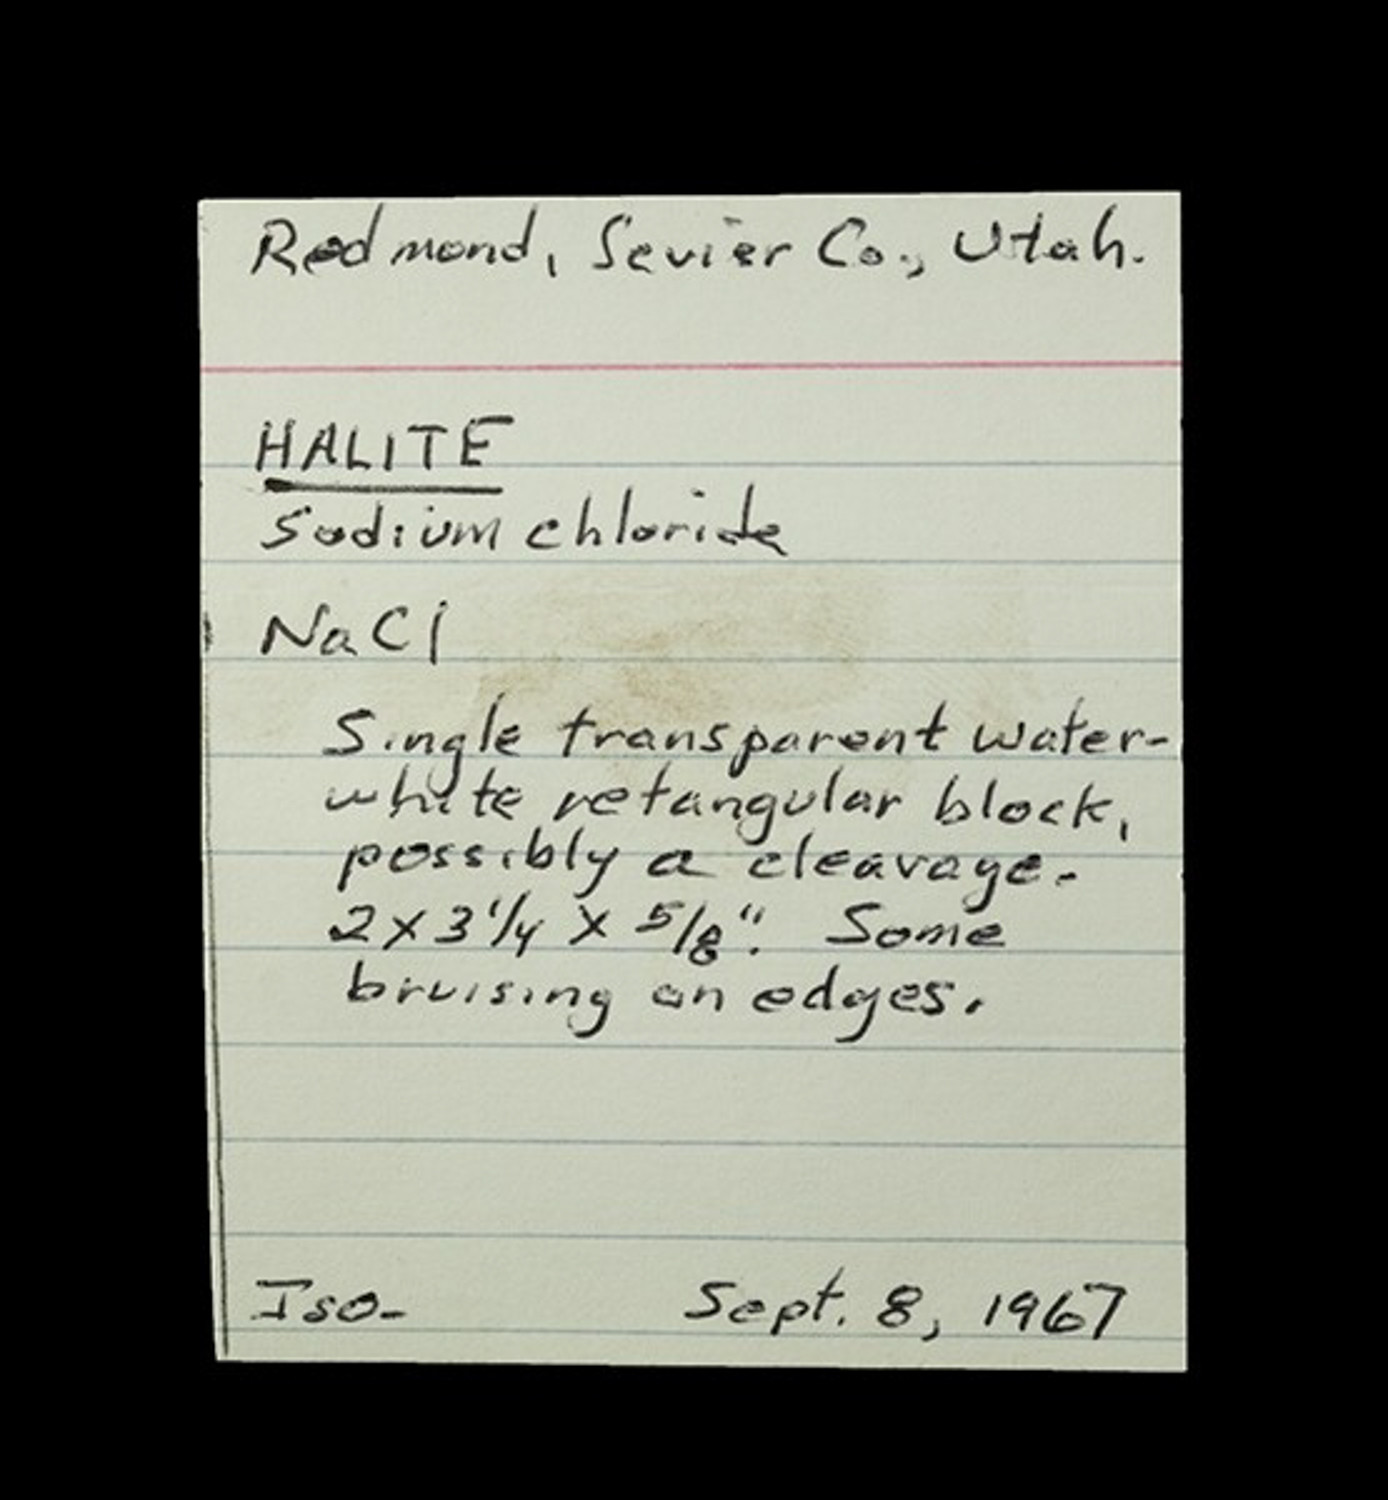 Redmond, Sevier Co., Utah.
HALITE
Sodium chloride
NaCl
Single transparent water-
white retangular block,
possibly a cleavage.
2 x 3 1/4 x 5/8". Some
bruising on edges.
Iso- Sept. 8, 1967